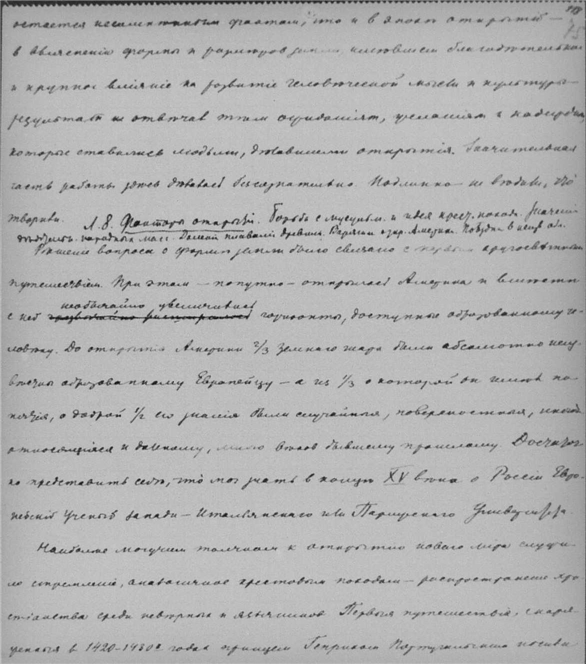 остается несомненным фактом, что и в эпоху открытий –
в выяснении формы и размеров земли, имевшем благодетельное
и крупное влияние на развитие человеческой мысли и культуры –
результат не отвечал тем ожиданиям, желаниям и надеждам,
которые ставились людьми, делавшими открытия. Значительная
часть работы здесь делалась бессознательно. Подлинно – не ведали, что
творили.
Л. 8. Факторы открытий. Борьба с мусульм. и идея крест. похода. Значение
народных масс. Далекие плавания древних. Варяги и др. Америка.
Решение вопроса о форме земли было связано с первым кругосветным
путешествием. При этом – попутно – открылась Америка и вместе
необычайно увеличились
с ней чрезвычайно расширились горизонты, доступные образованному че-
ловеку. До открытия Америки 2/3 земного шара были абсолютно неиз-
вестны образованному Европейцу – а из 1/3 о которой он имел по-
нятия, о доброй 1/2 его знания были случайныя, поверхностныя, иногда
относящияся к давнему, много веков бывшему прошлому. Достаточ-
но представить себе, что мог знать в конце XV века о России Евро-
пейский ученый запада – Итальянского или Парижского Университета.
Наиболее могучим толчком к открытию нового мира служи-
ло стремление, аналогичное крестовым походам – распространение хри-
стианства среди неверных и язычников. Первыя путешествия, снаря-
женныя в 1420-1430х годах принцем Генрихом Португальским